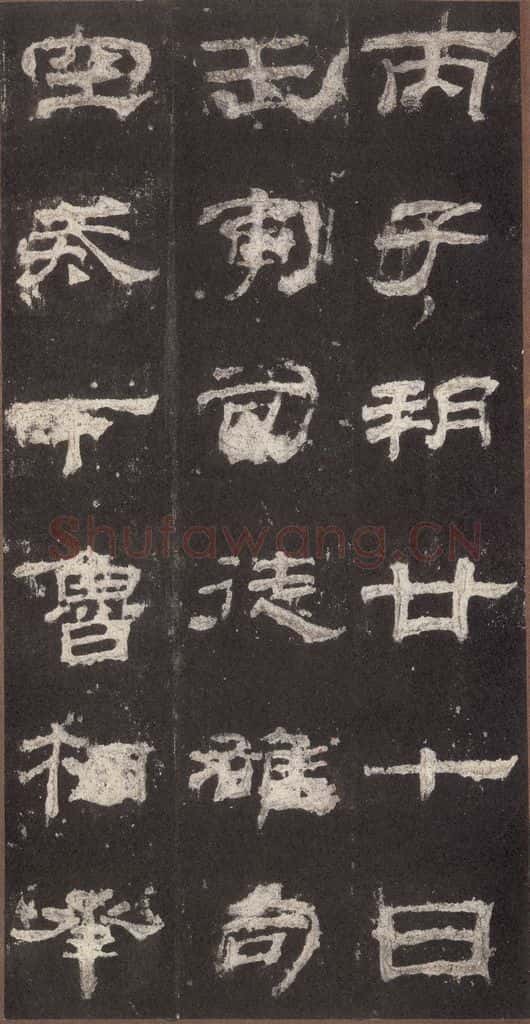 丙子朔廿七日
壬寅司徒雄司
空戒下魯相承
Shufawang.CN